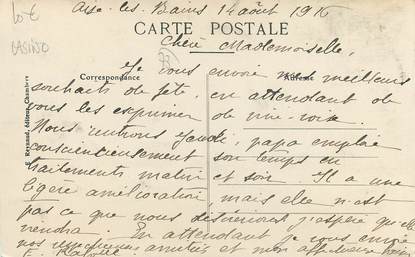 10 €
CASINO
Aix-les-Bains 14 août 1916
CARTE POSTALE
Chère Mademoiselle,
Correspondance
Je vous envoie meilleurs
souhaits de fête, en attendant de
vous les exprimer de vive-voix.
Nous rentrons jeudi, papa emploie
consciencieusement son temps en
traitements matin et soir. Il a une
légère amélioration, mais elle n'est
pas ce que nous désirerions j'espère qu'elle
viendra. En attendant je vous envoie
nos amitiés et mon
E. Reynaud, Editeur, Chambéry